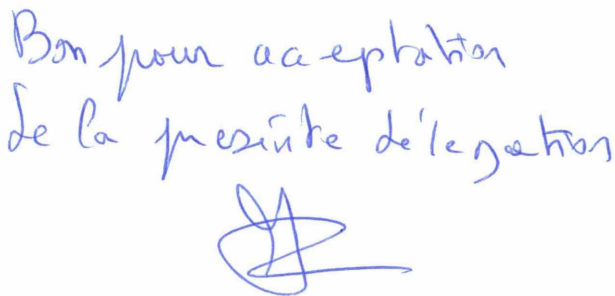 Bon pour acceptation
de la présente délégation